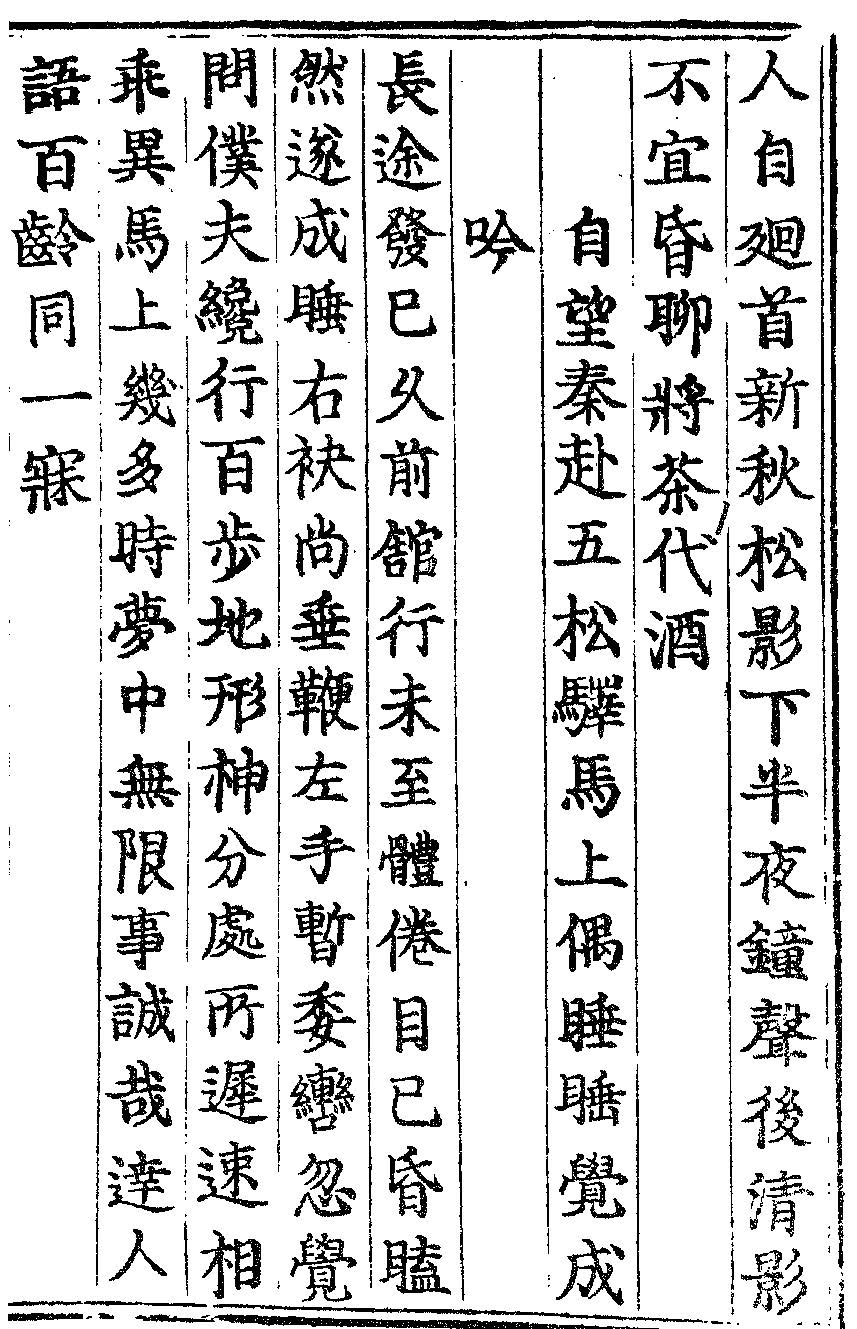 人自廻首新秋松影下半夜鐘聲後清影
不宜昏聊將茶代酒
自望秦赴五松驛馬上偶睡睡覺成
吟
長途發已久前館行未至體倦目已昏瞌
然遂成睡右袂尚垂鞭左手暫委轡忽覺
問僕夫纔行百步地形神分處所遲速相
乖異馬上幾多時夢中無限事誠哉達人
語百齡同一寐